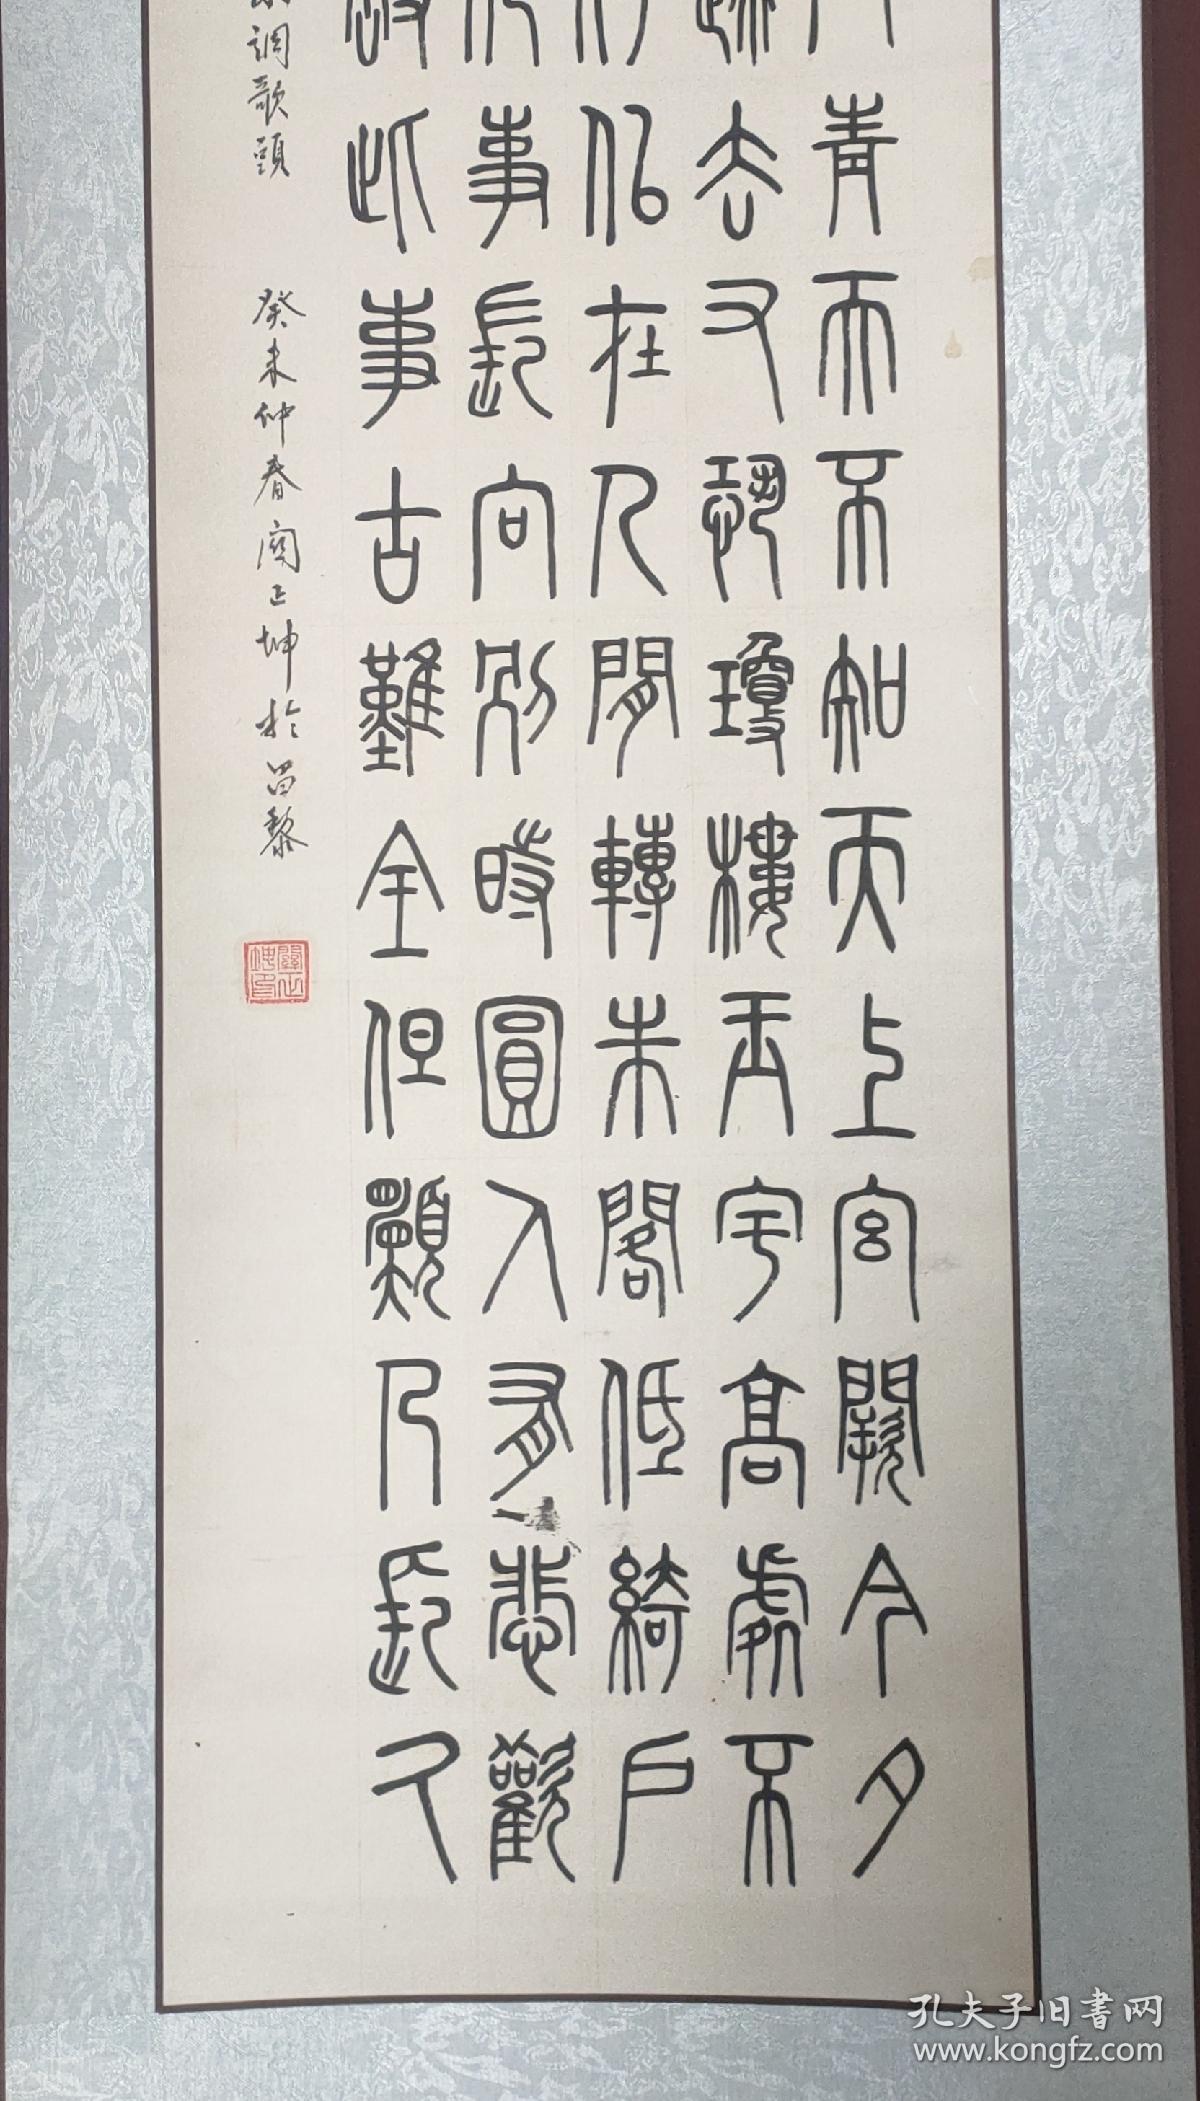 青天不知天上宮闕今夕
去又恐瓊樓玉宇高處不
似在人間轉朱閣低綺戶
事長向別時圓人有悲歡
此事古難全但願人長久
調歌頭 癸未仲春関正坤於昌黎
關正坤印
孔夫子旧書网
www.kongfz.com